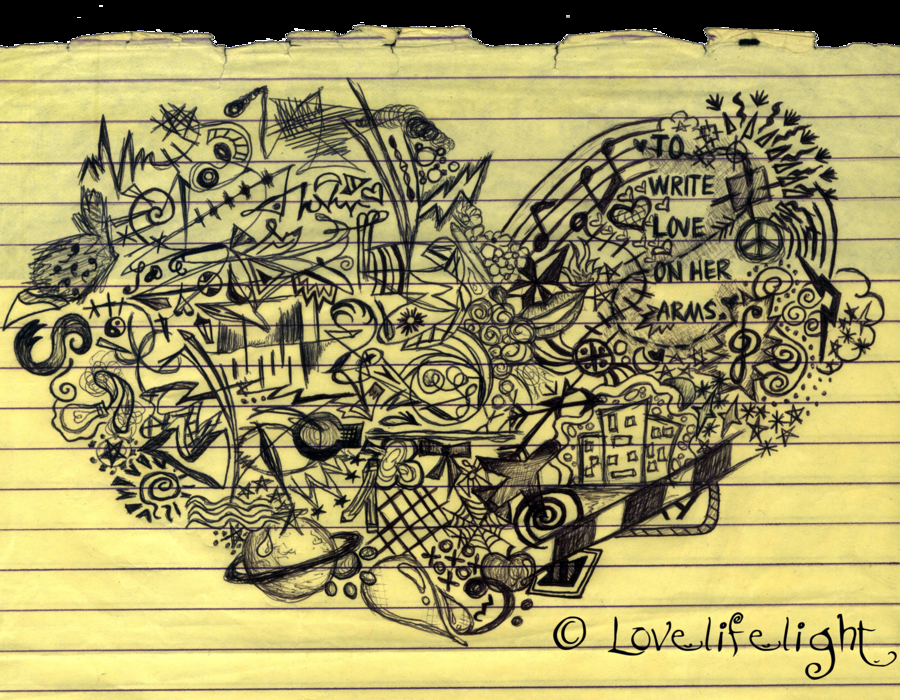 TO
WRITE
LOVE
ON HER
ARMS.
© Lovelifelight